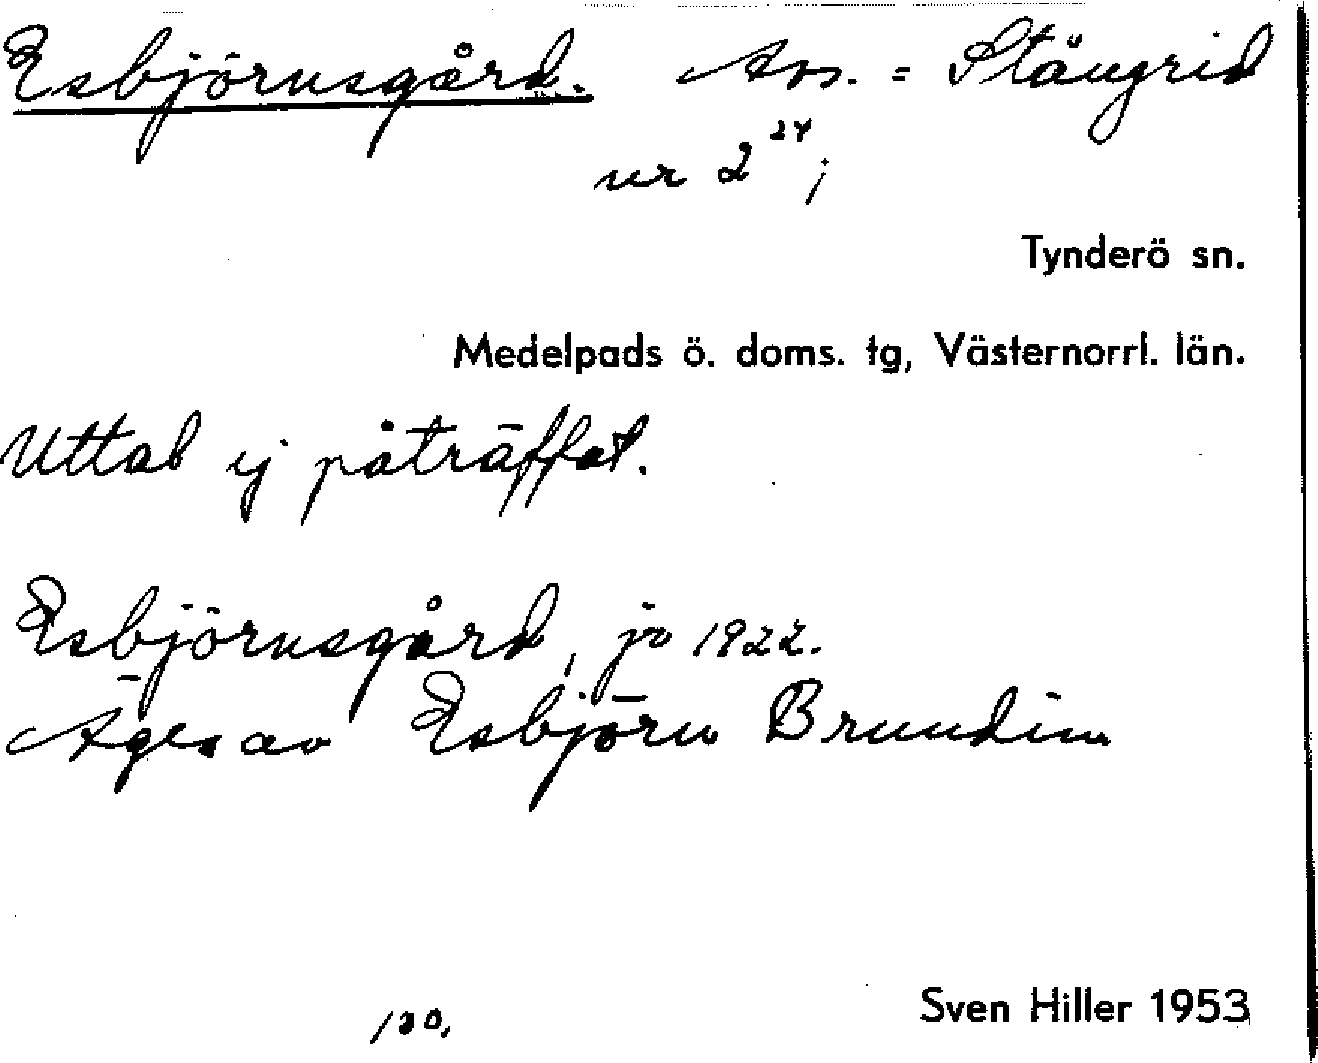 Esbjörnsgård. Avs. = Stängrid
nr 2²⁴;
Tynderö sn.
Medelpads ö. doms. tg, Västernorrl. län.
Uttal ej påträffat.
Esbjörnsgård, jr 1922.
Äges av Esbjörn Brundin
130,
Sven Hiller 1953